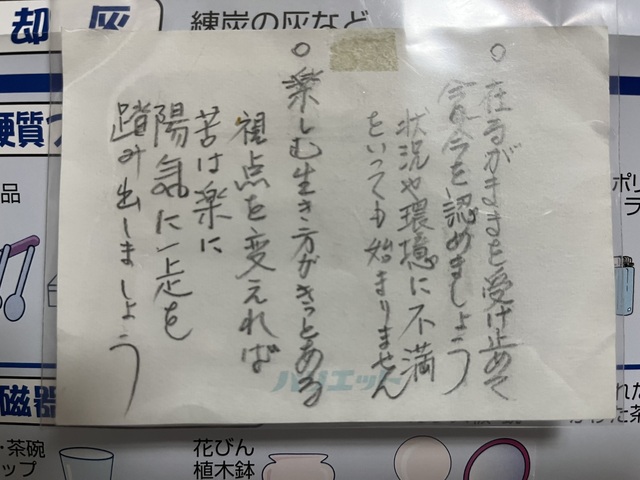 却灰
練炭の灰など
硬質
品
磁器
・茶碗
ップ
花びん
植木鉢
ポリ
ラ
○在るがままを受け止めて
今を認めましょう
状況や環境に不満
をいっても始まりません
○楽しむ生き方がきっとある
視点を変えれば
苦は楽に
陽気に一歩を
踏み出しましょう
ハリエット